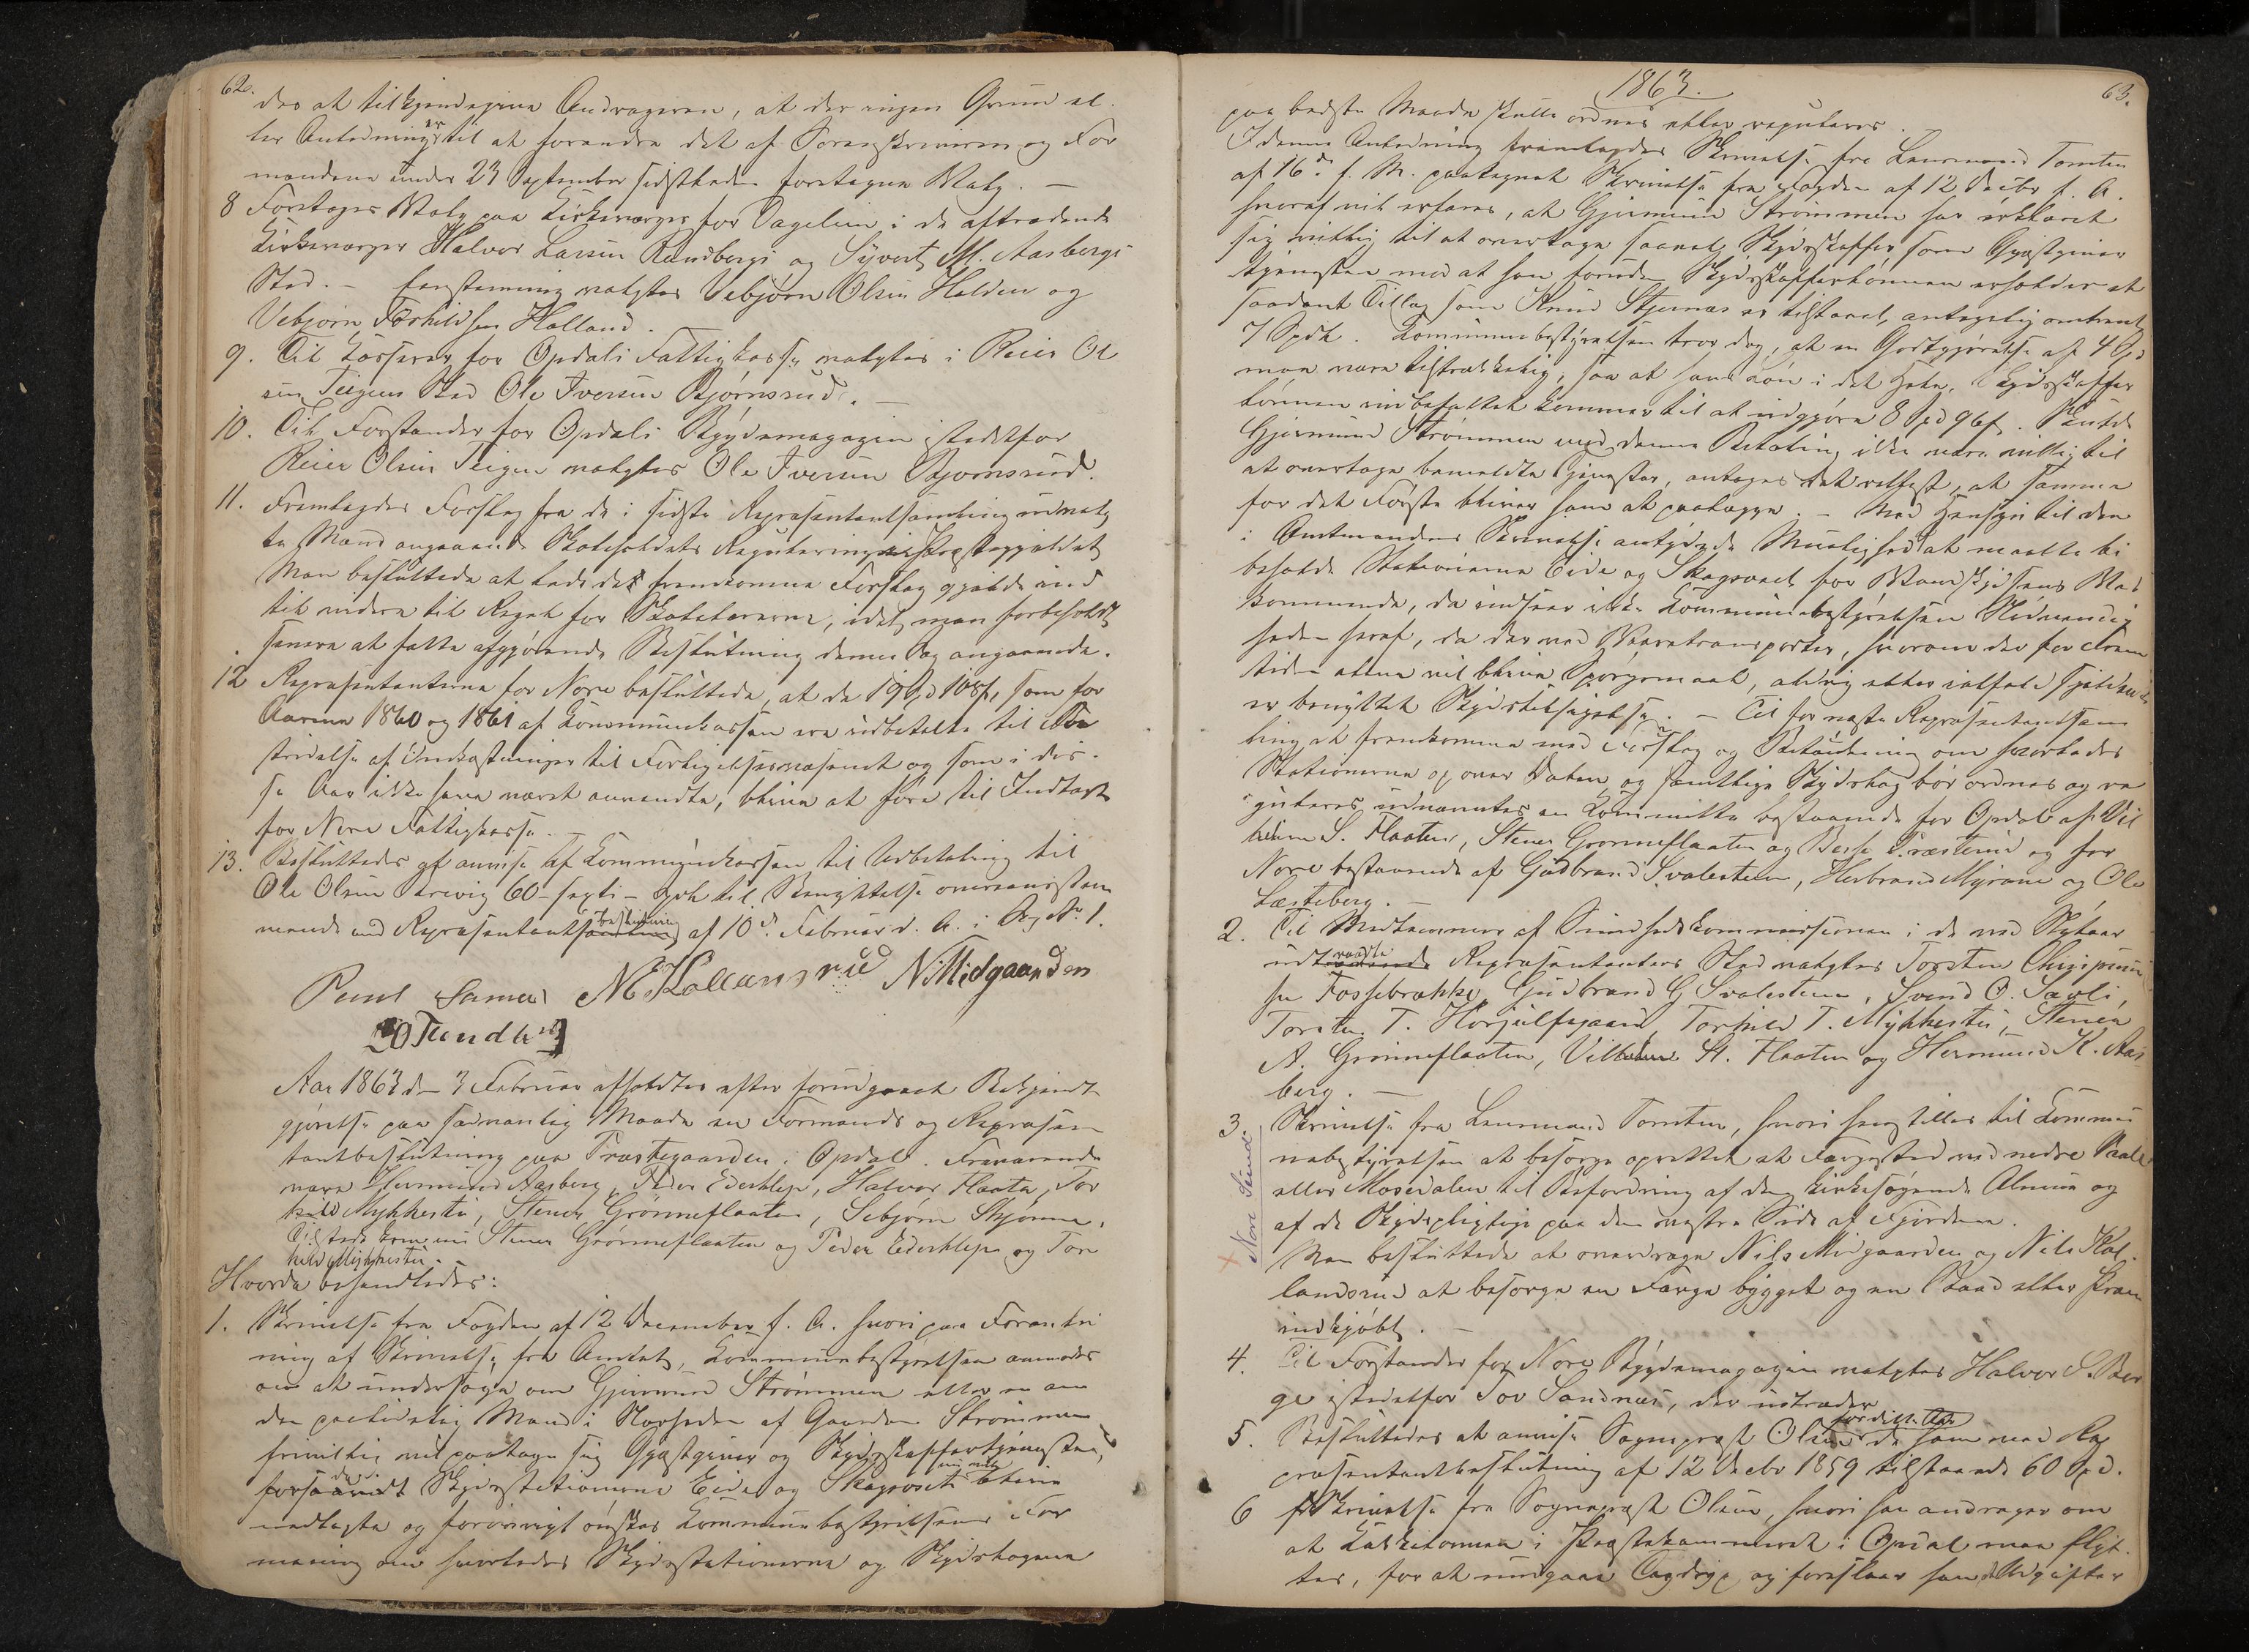 62.
des at tilkjendegive Andrageren, at der ingen Grund el-
ler Anledning er til at forandre det af Sorenskriveren og For
mændene under 23 September sidstleden foretagne Valg. —
8 Foretoges Valg paa Kirkeværger for Dagelien i de aftrædende
Kirkeværger Halvor Larsen Randbergs og Syvert M. Aasbergs
Sted. — Eenstemmig valgtes Vebjørn Olsen Halden og
Vebjørn Torkildsen Holland.
9. Til Kasserer for Opdals Fattigkasse valgtes i Reier Ol
sen Teigens Sted Ole Iversen Bjørnsrud. —
10. Til Forstander for Opdals Bygdemagazin istedetfor
Reier Olsen Teigen valgtes Ole Iversen Bjørnsrud.
11. Fremlagdes Forslag fra de i sidste Repræsentantsamling udvalg
te Mænd angaaende Skoleholdets Regulering i Præstegjeldet
Man besluttede at lade det fremkomne Forslag gjælde ind
til videre til Regel for Skolelærerne, idet man forbeholdt
senere at fatte afgjørende Beslutning denne Sag angaaende.
12 Repræsentanterne for Nore besluttede, at de 19 Spd 108 s, som for
Aarene 1860 og 1861 af Kommunekassen ere udbetalte til Be
stridelse af Omkostninger til Forligelsesvæsenet og som i dis-
se Aar ikke have været anvendte, blive at føre til Indtægt
for Nore Fattigkasse. —
13. Besluttedes at anvise af Kommunekassen til Udbetaling til
Ole Olsen Parevig 60 – sexti – Spd til Benyttelse overensstem
mende med Repræsentantbeslutning af 10de Februar d. A. i Sag No 1.
Poul Samer NKollansrud NMidgaarden
O Tiendh
Aar 1863 den 3 Februar afholdtes efter forudgaaet Bekjendt
gjørelse paa sædvanlig Maade en Formands og Repræsen
tantbeslutning paa Præstegaarden i Opdal. Fraværende
vare Hermund Aasberg, Peder Ederklep, Halvor Flaata, Tor
kild Mykkestu, Stener Grønneflaaten, Sebjørn Skjønne.
Tilstede kom nu Stener Grønneflaaten og Peder Ederklep og Tor
kild Mykkestu.
Hvorda behandledes:
1. Skrivelse fra Fogden af 12 December f. A. hvori paa Foranled
ning af Skrivelse fra Amtet, Kommunebestyrelsen anmodes
om at undersøge om Gjermund Strømmen eller en an
den paalidelig Mand i Nærheden af Gaarden Strømmen
frivillig vil paatage sig Gjæstgiver og Skydsskaffertjenesten,
forsaavidt Skydsstationerne Eide og Skagsoset blive
nedlagte og forøvrigt ønskes Kommunebestyrelsens For
mening om hvorledes Skydsstationerne og Skydslagene
1863.
63.
paa bedste Maade skulle ordnes eller reguleres.
I denne Anledning fremlagdes Skrivelse fra Lensmand Tomten
af 16de f. M. paategnet Skrivelse fra Fogden af 12 Decbr f. A.
hvoraf vil erfares, at Gjermund Strømmen har erklæret
sig villig til at overtage saavel Skydsskaffer som Gjæstgiver
tjenesten mod at han foruden Skydsskafferlønnen erholder et
saadant Tillæg som Knud Stjernes er tilstaaet, antagelig omtrent
7 Spdl. Kommunebestyrelsen tror dog, at en Godtgjørelse af 4 Spd
maa være tilstrækkelig, saa at hans Løn i det Hele, Skydsskaffer
lønnen indbefattet kommer til at udgjøre 8 Spd 96 s. Skulde
Gjermund Strømmen mod denne Betaling ikke være villig til
at overtage bemeldte Tjenester, antages det rettest, at samme
for det Første bliver ham at paalægge. — Med Hensyn til den
i Amtmandens Skrivelse antydede Muelighed at maatte bi
beholde Stationerne Eide og Skagsoset for Vandskydsens Ved
kommende, da indsaae ikke Kommunebestyrelsen Nødvendig
heden heraf, da der ved Varetransporter, hvorom der for Frem
tiden alene vil blive Spørgsmaal, aldrig eller ialfald sjelden
er benyttet Skydstilsigelse. — Til for næste Repræsentantsam
ling at fremkomme med Forslag og Betænkning om hvorledes
Stationerne op over Dalen og samtlige Skydslag bør ordnes og re
guleres udnævntes en Kommitte bestaaende for Opdal af Vil
helm S. Flaaten, Stener Grønneflaaten og for
Nore bestaaende af Gudbrand Svalestuen, Herbrand Myrane og Ole
Læsteberg. —
2. Til Medlemmer af Sundhedskommissionen i de ved Nytaar
udtraadte Repræsentanters Sted valgtes Torsten
sen Fossebrække, Gudbrand G Svalestuen, Svend O. Sævli,
Torsten T. Horjulfsgaard, Torkild T. Mykkestu, Stener
A. Grønneflaaten, Vilhelm St. Flaaten og Hermund K. Aas
berg. —
3. Skrivelse fra Lensmand Tomten, hvori henstilles til Kommu
nebestyrelsen at besørge oprettet et Færgested ved nedre Traal
eller Mosedalen til Befordring af den kirkesøgende Almue og
af de Skydspligtige paa den vestre Side af Fjorden.
Man besluttede at overdrage Nils Midgaarden og Nils Kol-
landsrud at besørge en Færge bygget og en Baad eller Pram
indkjøbt. —
Nore Sund
4. Til Forstander for Nore Bygdemagazin valgtes Halvor S. Ber
ge istedetfor Tov Sandnes, der udtræder
5. Besluttedes at anvise Sogneprest Olsen for dette Aar de ham ved Re
præsentantbeslutning af 12 Decbr 1859 tilstaaede 60 Spd.
6 Skrivelse fra Sogneprest Olsen, hvori han andrager om
at Kakkelovnen i Præstekammeret i Opdal maa flyt-
tes, for at undgaae Tagdryp og foreslaar han Udgifter